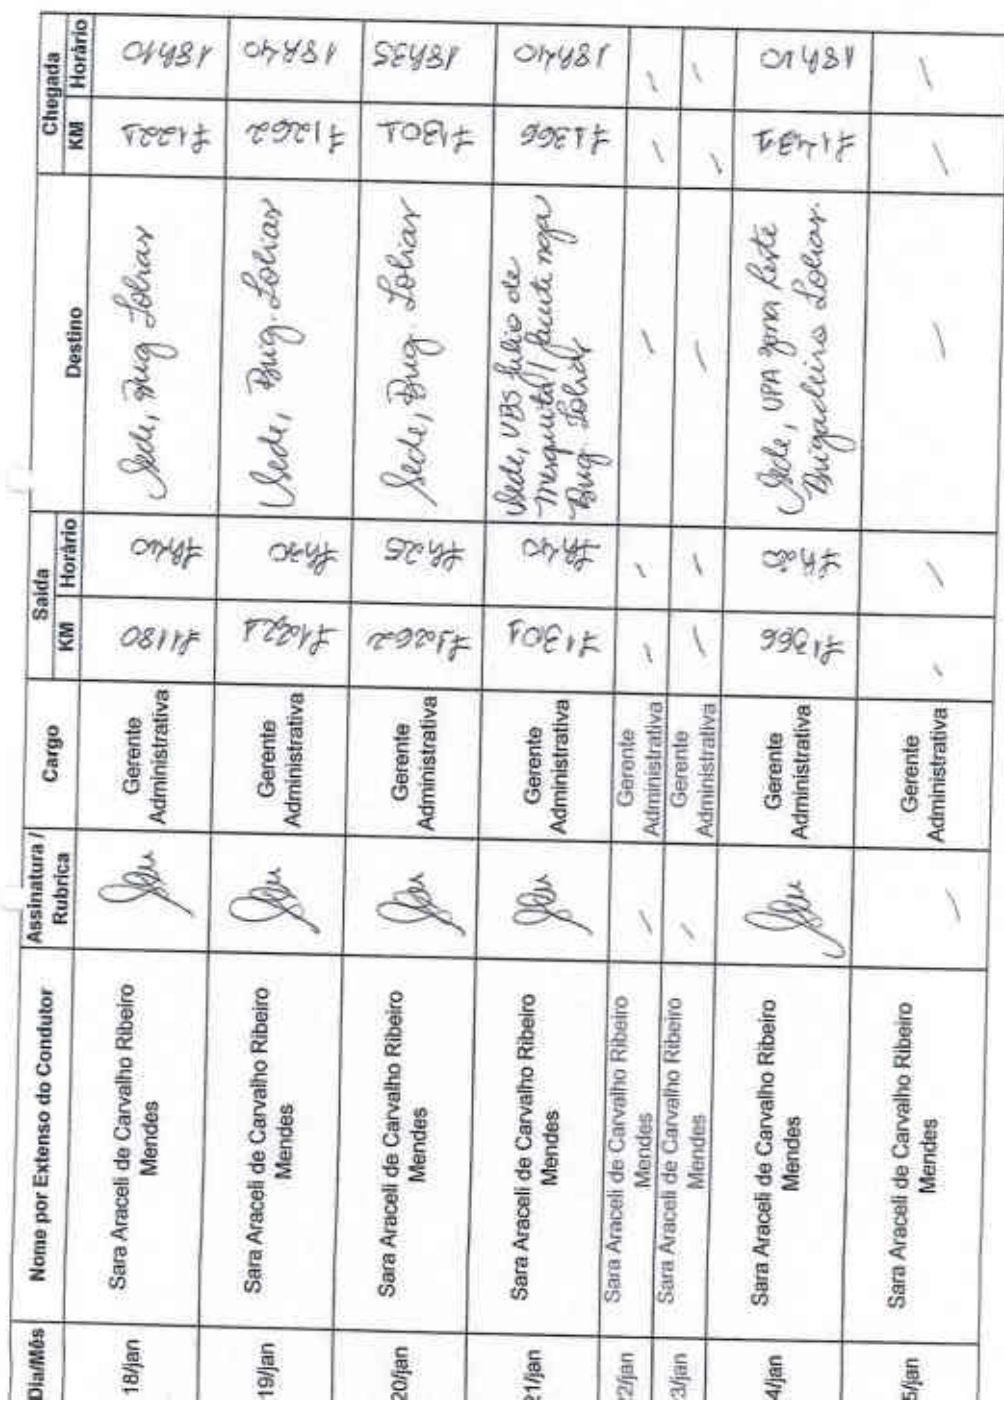 Dia/Mês Nome por Extenso do Condutor Assinatura / Rubrica Cargo Saída Destino Chegada
KM Horário KM Horário
18/jan Sara Araceli de Carvalho Ribeiro Mendes Gerente Administrativa 71180 7h40 Sede, Brig Lobias 71221 18h10
19/jan Sara Araceli de Carvalho Ribeiro Mendes Gerente Administrativa 71221 7h30 Sede, Brig. Lobias 71262 18h40
20/jan Sara Araceli de Carvalho Ribeiro Mendes Gerente Administrativa 71262 7h25 Sede, Brig. Lobias 71301 18h35
21/jan Sara Araceli de Carvalho Ribeiro Mendes Gerente Administrativa 71301 7h40 Sede, UBS Julio de
Mesquita
Brig. Lobias 71366 18h40
22/jan Sara Araceli de Carvalho Ribeiro Mendes / Gerente Administrativa / / / / /
3/jan Sara Araceli de Carvalho Ribeiro Mendes / Gerente Administrativa / / / / /
4/jan Sara Araceli de Carvalho Ribeiro Mendes Gerente Administrativa 71366 Sede, UPA Zona Leste
Brigadeiro Lobias. 71431
5/jan Sara Araceli de Carvalho Ribeiro Mendes / Gerente Administrativa / / / / /